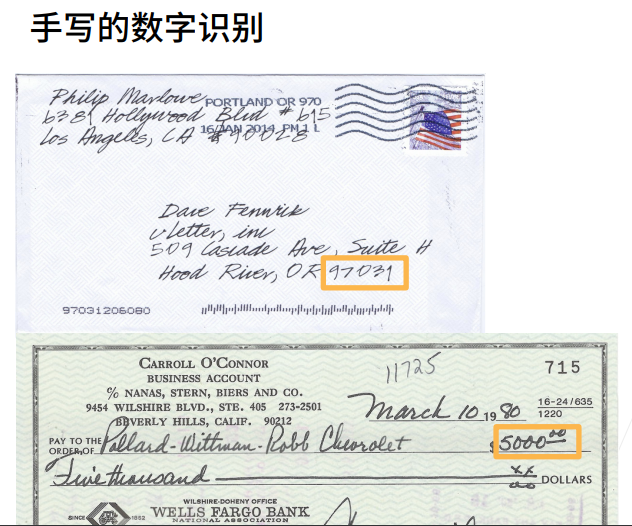 手写的数字识别
Philip Marlowe
PORTLAND OR 970
6381 Hollywood Blvd # 615
16 JAN 2014 PM 1 L
Los Angeles, CA 90028
Dave Fennick
vLetter, inc
509 Cascade Ave, Suite H
Hood River, OR 97031
97031206080
CARROLL O'CONNOR
BUSINESS ACCOUNT
% NANAS, STERN, BIERS AND CO.
9454 WILSHIRE BLVD., STE. 405 273-2501
BEVERLY HILLS, CALIF. 90212
11725
715
March 10 1980
16-24/635
1220
PAY TO THE
ORDER OF Pollard-Wittman-Robb Chevrolet $5000 00
Five thousand xx/00 DOLLARS
WILSHIRE-DOHENY OFFICE
SINCE 1852 WELLS FARGO BANK
NATIONAL ASSOCIATION